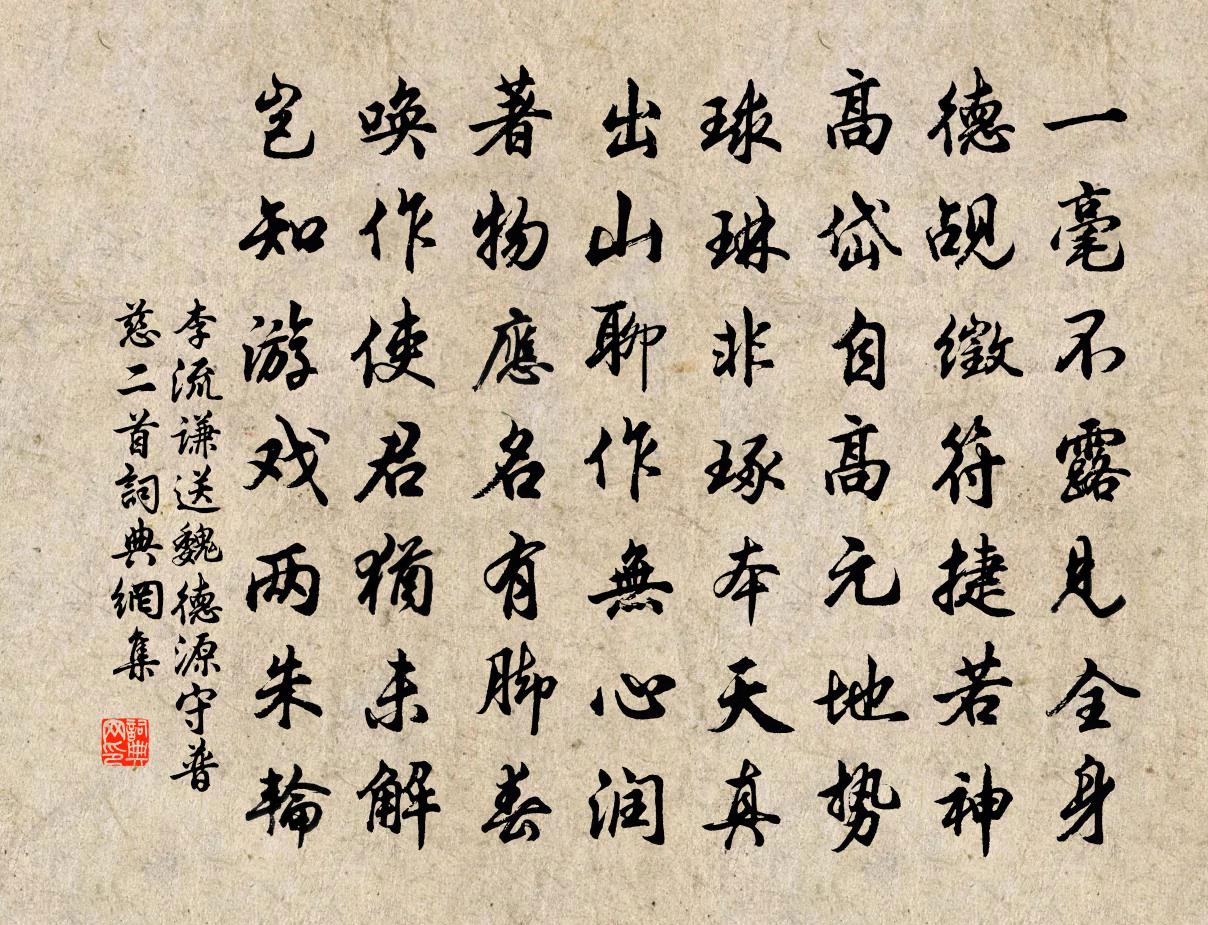 一毫不露見全身
德觇徵符捷若神
高岱自高元地势
球琳非琢本天真
出山聊作無心润
著物應名有脚春
唤作使君猶未解
岂知游戏两朱輪
李流谦送魏德源守普
慈二首詞典網集
詞典